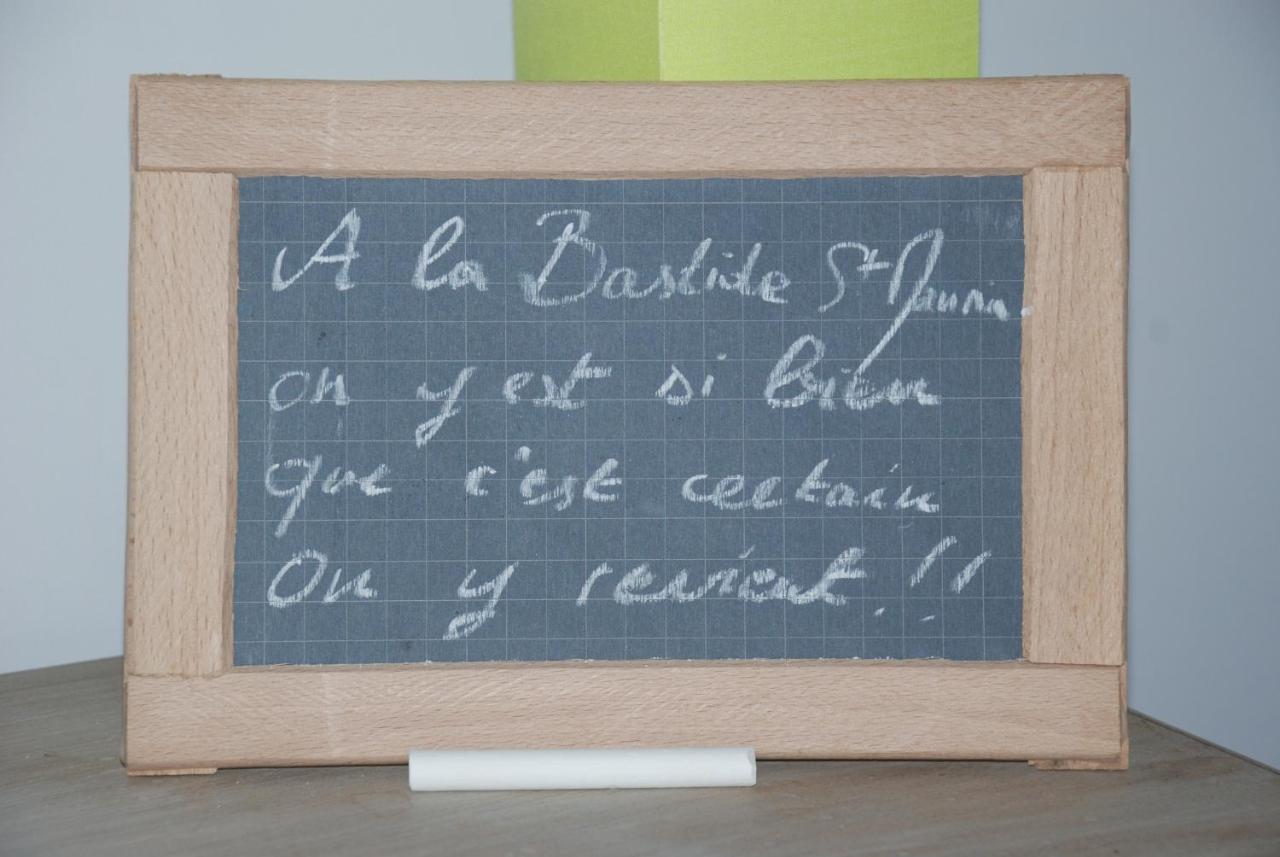 A la Bastide St
on y est si bien
que c'est certain
On y revient !!